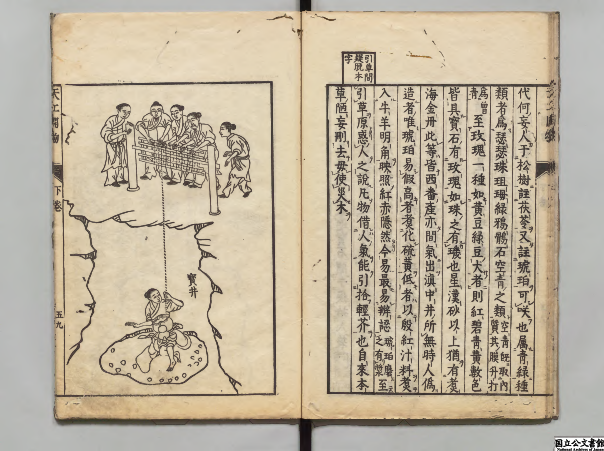 引草間
縱脫本
字
代何妄人于松樹註茯苓又註琥珀可咲也属青綠種
類者爲瑟瑟珠珇珻綠鴉鶻石空青之類空青既取內質其膜升打
爲曾青至玫瑰一種如黃豆綠豆大者則紅碧青黃數色
皆具寶石有玫瑰如珠之有璣也星漢砂以上猶有煑
海金丹此等皆西番產亦間氣出滇中井所無時人僞
造者唯琥珀易假高者煑化硫黃低者以殷紅汁料煑
入牛羊明角映照紅赤隱然今易最易辨認琥珀磨之有漿至
引草原惑人之說凡物借人氣能引拾輕芥也自来本
草陋妄刪去毋使災木
天工開物
下卷
五九
寶井
国立公文書館
National Archives of Japan